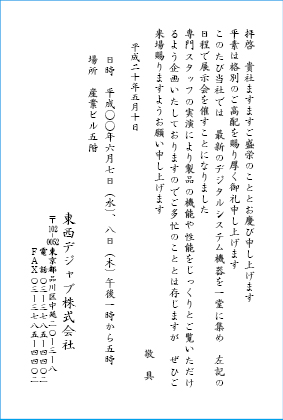 拝啓　貴社ますますご盛栄のこととお慶び申し上げます
平素は格別のご高配を賜り厚く御礼申し上げます
このたび当社では　最新のデジタルシステム機器を一堂に集め　左記の
日程で展示会を催すことになりました
専門スタッフの実演により製品の機能や性能をじっくりとご覧いただけ
るよう企画いたしておりますのでご多忙のこととは存じますが　ぜひご
来場賜りますようお願い申し上げます
敬具
平成二十年五月十日
日時　平成〇〇年六月七日（水）、八日（木）午後一時から五時
場所　産業ビル五階
東西デジャブ株式会社
〒102-0052 東京都品川区中延二〇ー三ー八
電話〇三ー三七八五ー四四〇二
ＦＡＸ〇三ー三七八五ー四四〇二